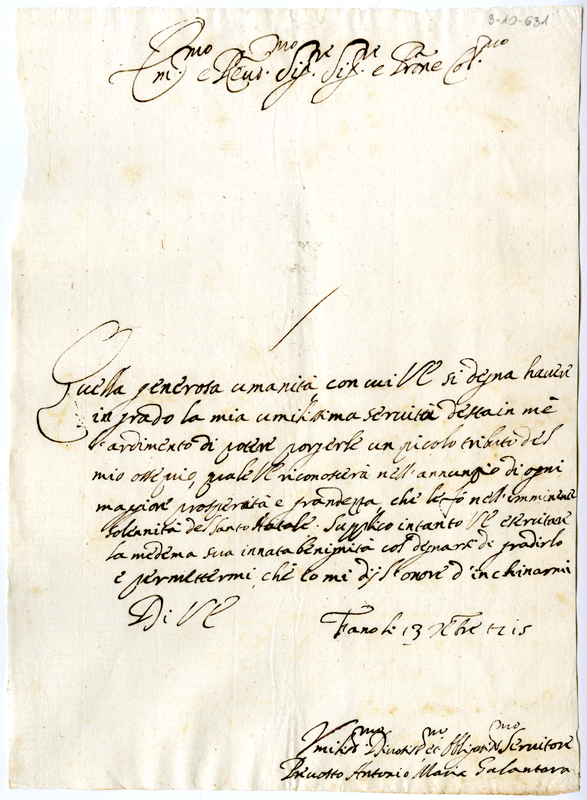 3-10-631
Em.mo e Reud.mo Sig.re Sig.re e Prone Col.mo
Quella generosa umanità con cui VE si degna havere
in grado la mia umilissima servitù desta in mè
l'ardimento di potere porgerle un picolo tributo del
mio ossequio, quale VE riconosterà nell'annunzio di ogni
maggiore prosperità e grandezza, che le fò nell'emminente
solennità del Santo Natale. Supplico intanto VE esercitare
la medema sua innata benignità col degnarsi di gradirlo
e permettermi, che io mi dij l'onore d'inchinarmi
Di VE
Fano li 13 Xbre 1715
Umiliss.mo Divotiss.mo et Obligatiss.mo Servitore
Prevosto Antonio Maria Galantara